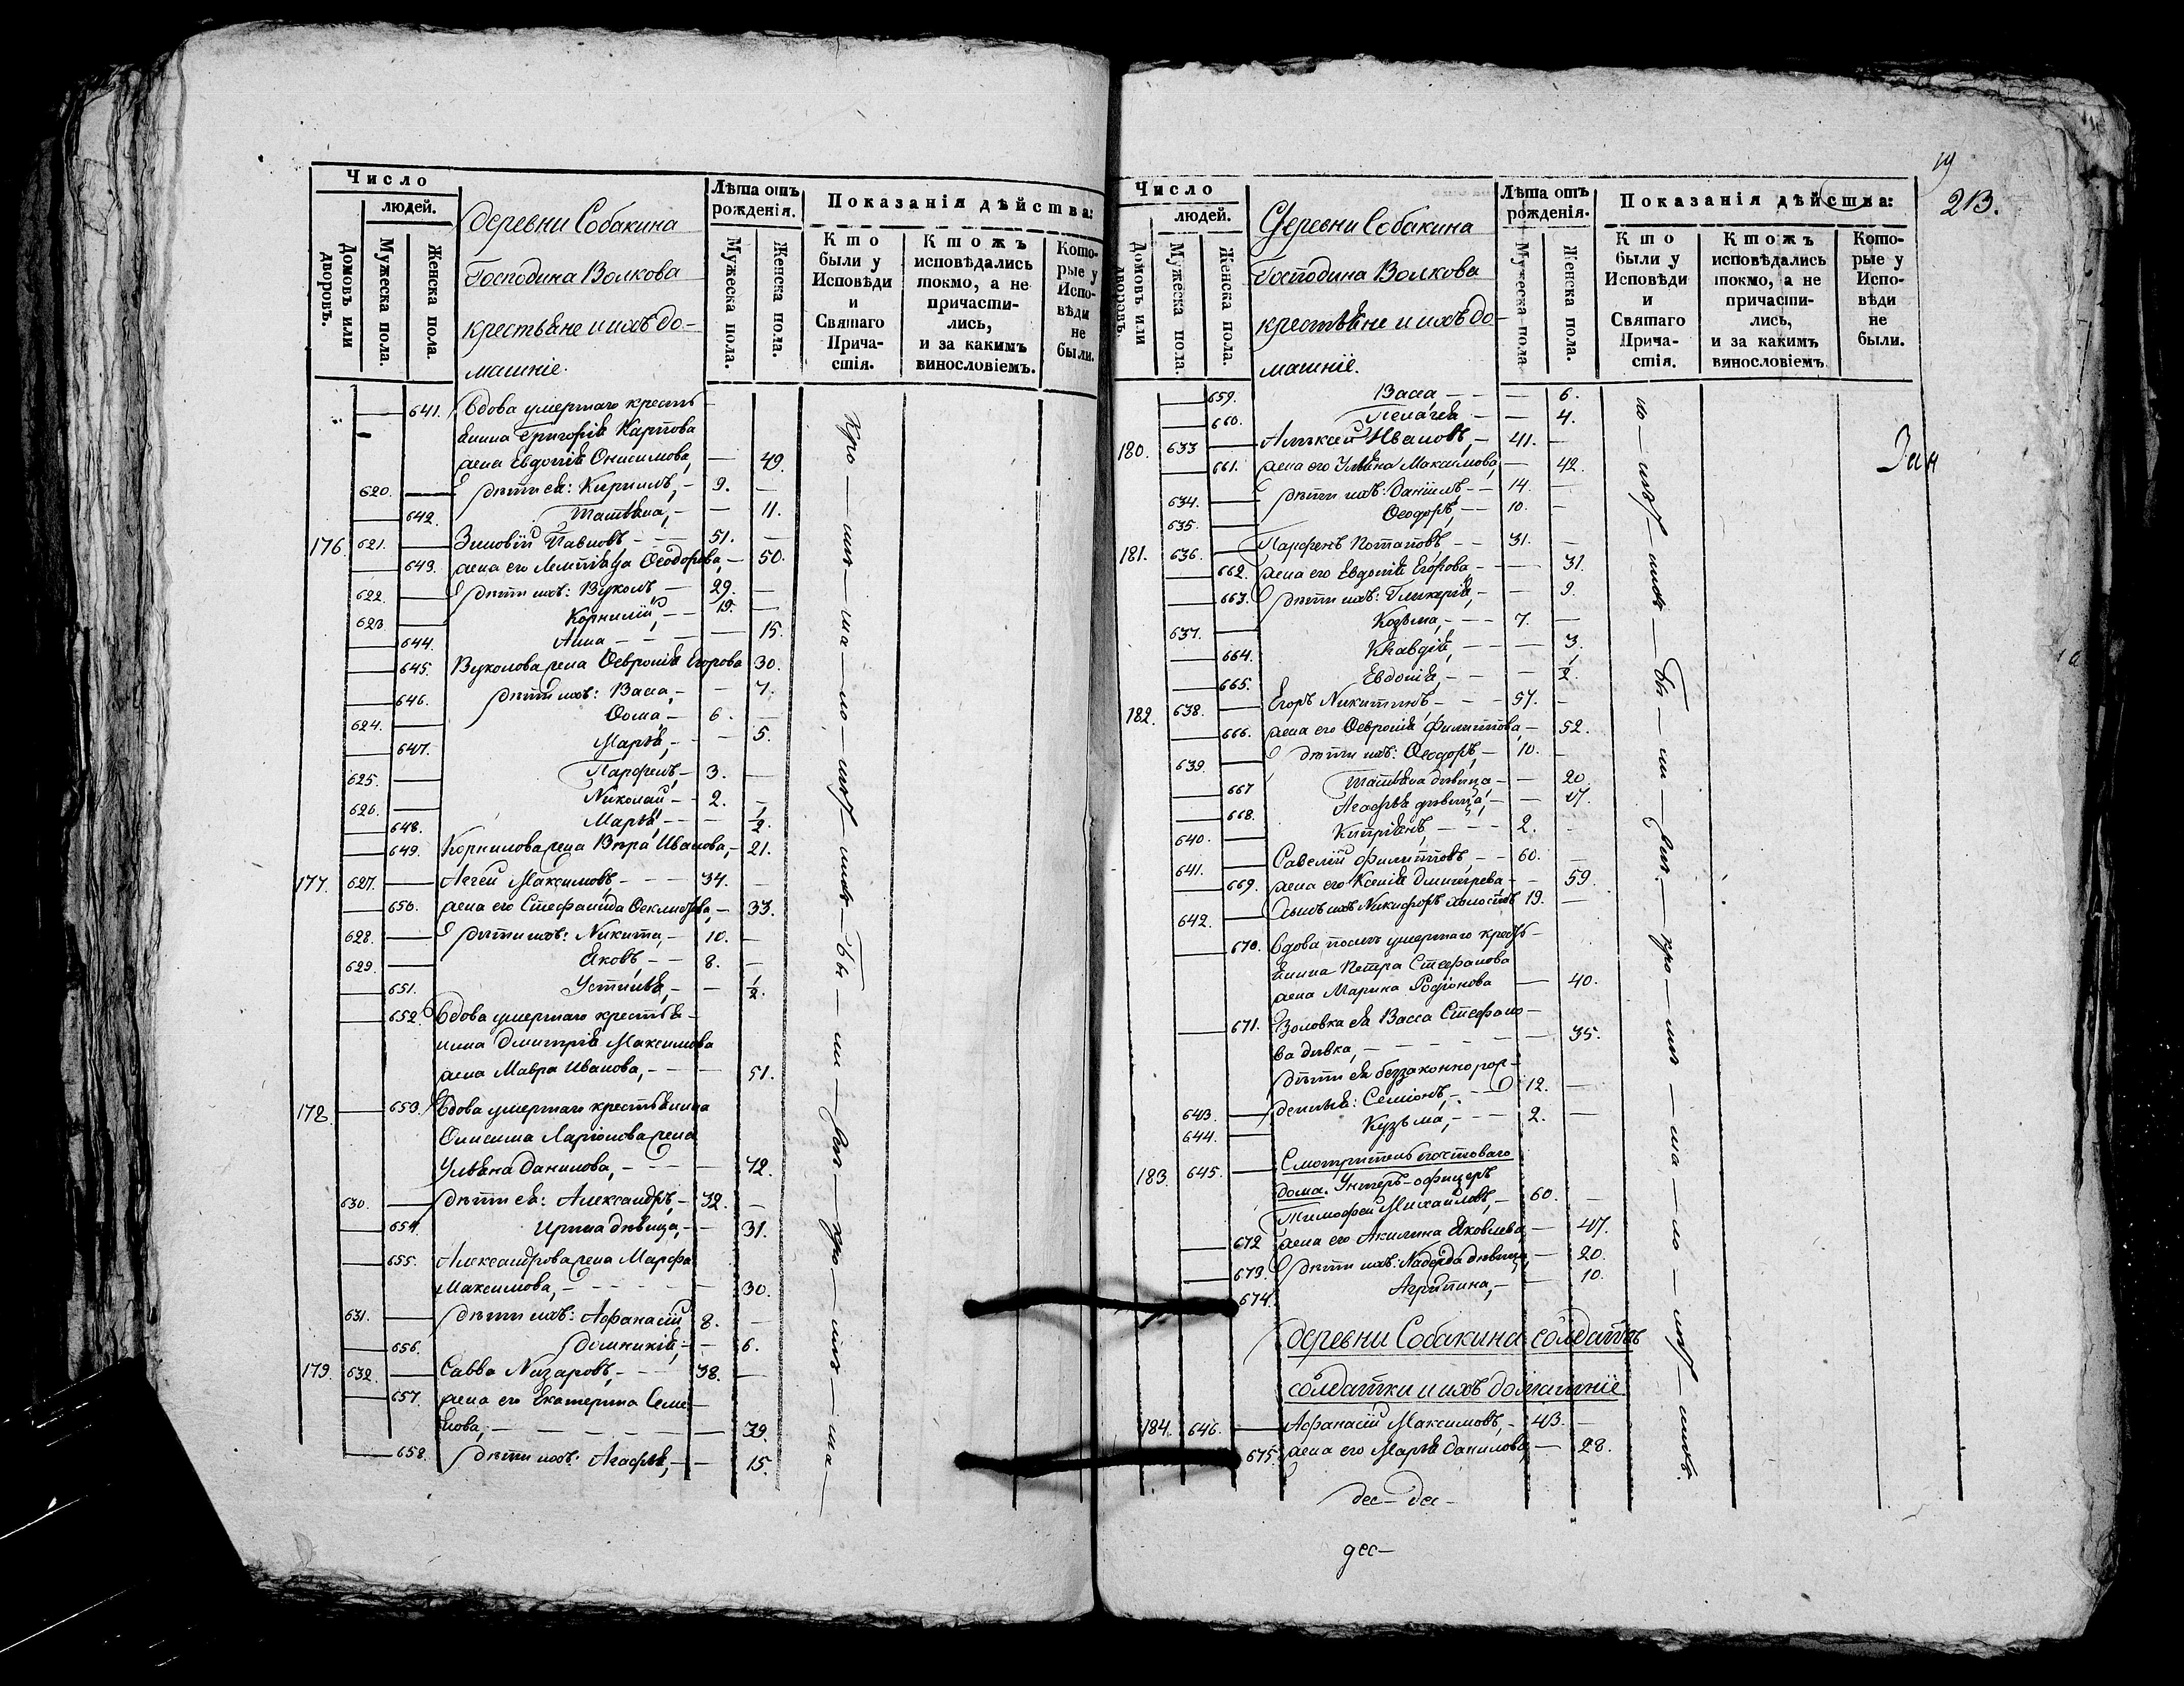 Число
людей.
Домовъ или дворовъ.
Мужеска пола.
Женска пола.
деревни Собакина
Господина Волкова
крестьяне и ихъ до-
машніе.
Лѣта отъ рожденія.
Мужеска пола.
Женска пола.
Показанія дѣйства:
Кто были у Исповѣди и Святаго Причастія.
Ктожъ исповѣдались токмо, а не причастились, и за какимъ винословіемъ.
Которые у Исповѣди не были.
641. Вдова умершаго кресть-
янина Григорія Карпова
жена Евдокія Онисимова, — 49.
620. дѣти ея: Кирилъ, — 9. —
642. Татьяна, — — 11.
176. 621. Зиновій Павловъ — — 51. —
643. жена его Гликерія Ѳеодорова, — 50.
622. дѣти ихъ: Вуколъ, — 29. —
623. Корнилій, — 19. —
644. Анна — — — 15.
645. Вуколова жена Ѳевронія Егорова 30.
646. дѣти ихъ: Васса, — — 7.
624. Ѳома, — 6. —
647. Марья, — — 5.
625. Парфенъ, — 3. —
626. Николай — — 2. —
648. Марья — — — 1/2.
649. Корнилова жена Вѣра Иванова, — 21.
177. 627. Аггей Максимовъ, — — 34. —
650. жена его Стефанида Ѳеклистова, — 33.
628. дѣти ихъ: Никита, — 10. —
629. Яковъ, — — 8. —
651. Устинья, — — 1/2.
652. Вдова умершаго крестья-
нина Дмитрія Максимова
жена Мавра Иванова, — — 51.
178. 653. Вдова умершаго крестьянина
Онисима Ларіонова жена
Ульяна Данилова, — — 72.
630. дѣти ея: Александръ, — 32. —
654. Ирина дѣвица, — — 31.
655. Александрова жена Марфа
Максимова, — — — — 30.
631. дѣти ихъ: Афанасій 8. —
656. Домникія, — — 6.
179. 632. Савва Назаровъ, — — 38. —
657. жена его Екатерина Семе-
нова, — — — — — 39.
658. дѣти ихъ: Агафья, — — 15.
213.
Число
людей.
Домовъ или дворовъ.
Мужеска пола.
Женска пола.
Деревни Собакина
Господина Волкова
крестьяне и ихъ до-
машніе.
Лѣта отъ рожденія.
Мужеска пола.
Женска пола.
Показанія дѣйства:
Кто были у Исповѣди и Святаго Причастія.
Ктожъ исповѣдались токмо, а не причастились, и за какимъ винословіемъ.
Которые у Исповѣди не были.
659. Васса, — — — 6.
660. Пелагея — — 4.
180. 633 Алексѣй Ивановъ, — 41. —
661. жена его Ульяна Максимова, — 42.
634. дѣти ихъ: Даніилъ — — 14. —
635. Ѳеодоръ, — — 10. —
181. 636. Парфенъ Потаповъ — — 31. —
662. жена его Евдокія Егорова — — 31.
663. дѣти ихъ: Гликерія, — — 9.
637. Козьма, — — — 7. —
664. Клавдія, — — — 3.
665. Евдокія, — — — 1/2.
182. 638. Егоръ Никитинъ, — — — 57. —
666. жена его Ѳевронія Филиппова, — 52.
639. дѣти ихъ: Ѳеодоръ, — 10. —
667 Татьяна дѣвица, — — 20
668. Агафья дѣвица, — — 17.
640. Кипріянъ, — — — 2. —
641. Савелій Филипповъ, — — 60. —
669. жена его Ксенія Дмитрева — — 59.
642. Сынъ ихъ Никифоръ холостъ 19. —
670. Вдова послѣ умершаго кресть-
янина Петра Стефанова
жена Марина Родіонова — 40.
671. Золовка ея Васса Стефано-
ва дѣвка, — — — — — 35.
дѣти ея беззаконнорож-
643. денныя: Семіонъ, — — 12. —
644. Кузьма, — — — 2. —
183. 645. Смотритель постоваго
дома. Унтеръ-офицеръ
Тимофей Михайловъ, — 60. —
672 жена его Акилина Яковлева — 47.
673. дѣти ихъ: Надежда дѣвица — 20.
674. Агрипина, — — 10.
деревни Собакина солдатъ
солдатки и ихъ домашніе
184. 646. Афанасій Максимовъ, — 43. —
675. жена его Марья Данилова, — 28.
дес— дес—
дес—